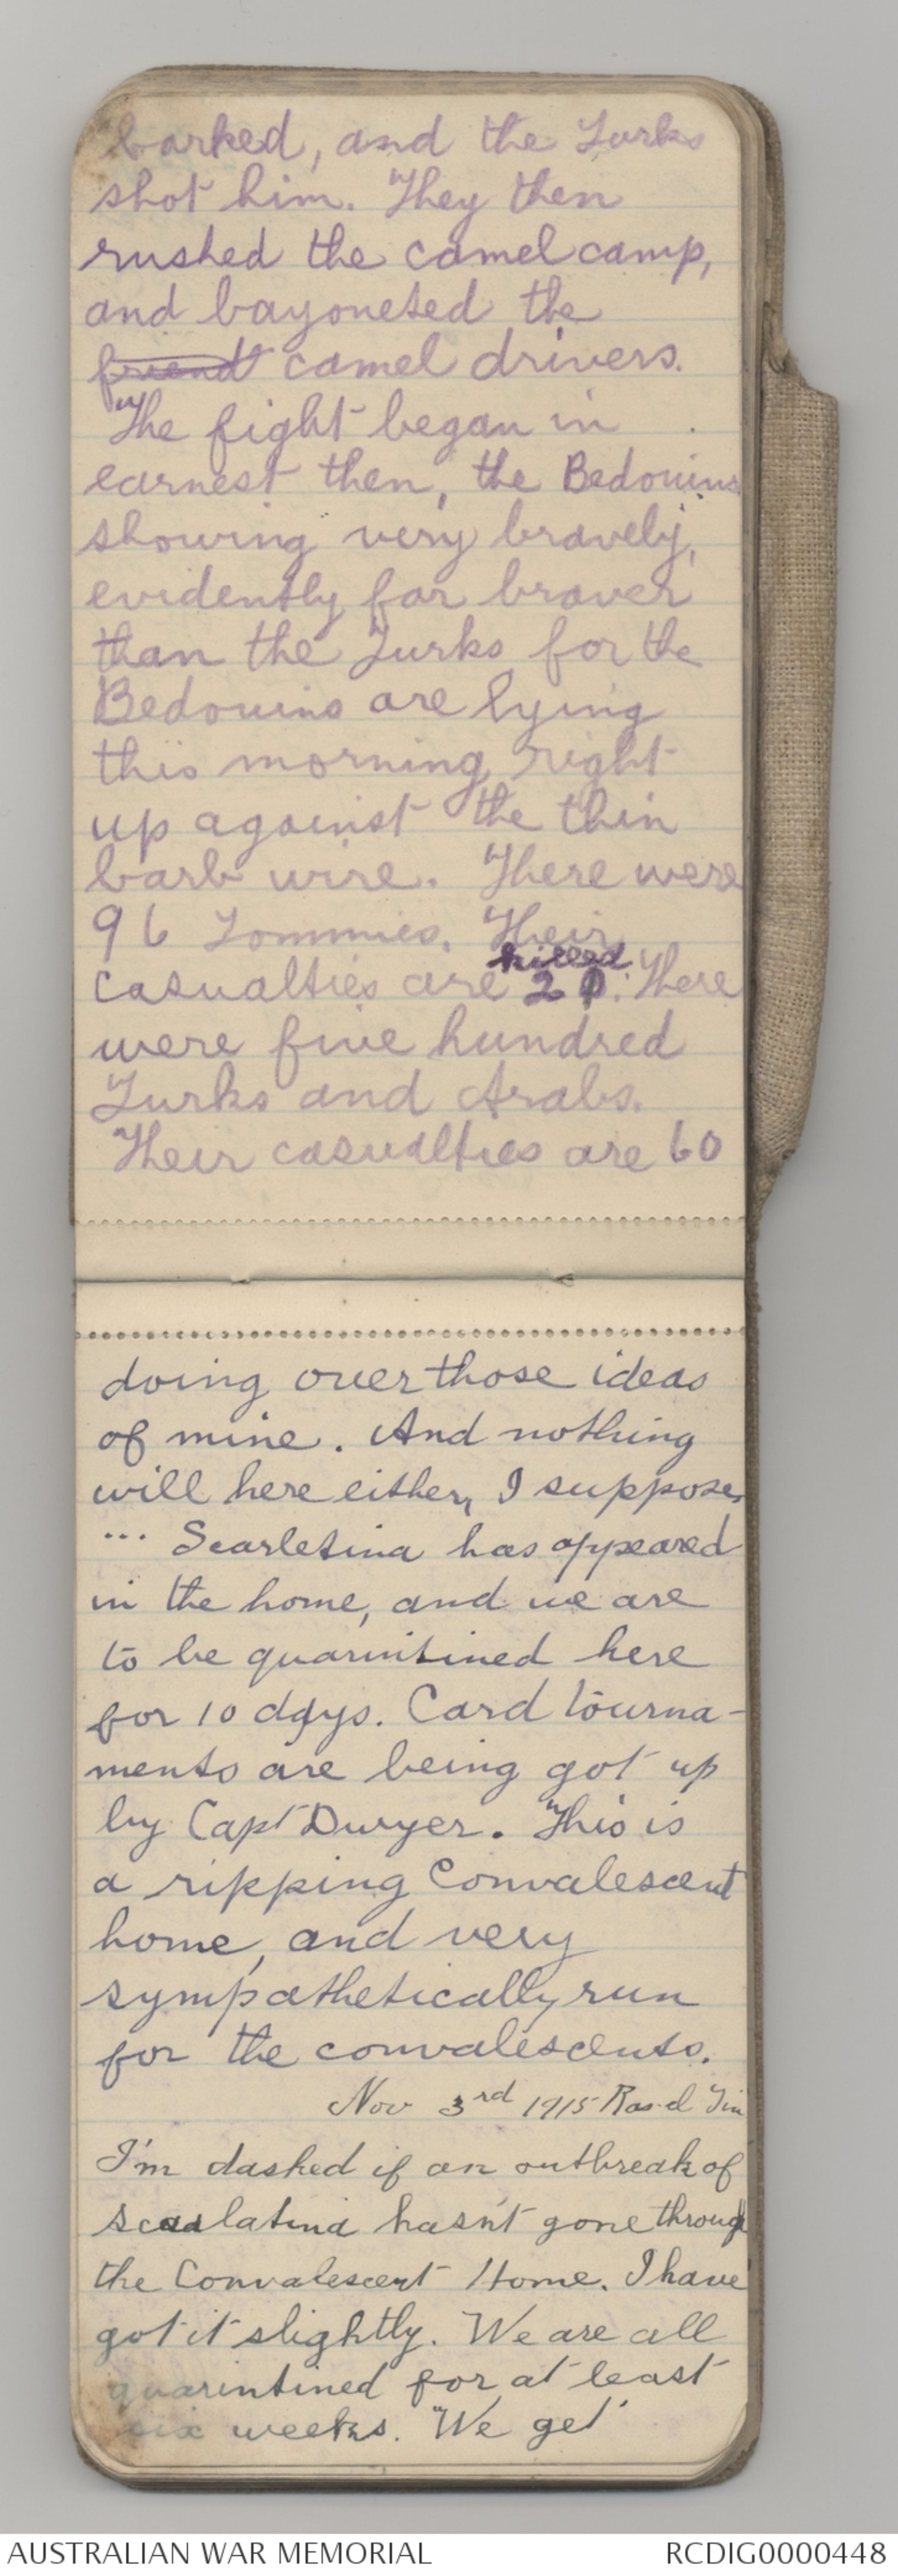 barked, and the Turks
shot him. They then
rushed the camel camp,
and bayoneted the
friend camel drivers.
The fight began in
earnest then, the Bedouins
showing very bravely,
evidently far braver
than the Turks for the
Bedouins are lying
this morning right
up against the thin
barb wire. There were
96 Tommies. Their
killed
casualties are 20. There
were five hundred
Turks and Arabs.
Their casualties are 60
doing over those ideas
of mine. And nothing
will here either, I suppose.
... Scarletina has appeared
in the home, and we are
to be quarintined here
for 10 days. Card tourna-
ments are being got up
by Capt Dwyer. This is
a ripping Convalescent
home, and very
sympathetically run
for the convalescents.
Nov 3rd 1915 Ras-el Tin
I'm dashed if an outbreak of
scarlatina hasn't gone through
the Convalescent Home. I have
got it slightly. We are all
quarintined for at least
six weeks. We get
AUSTRALIAN WAR MEMORIAL
RCDIG0000448